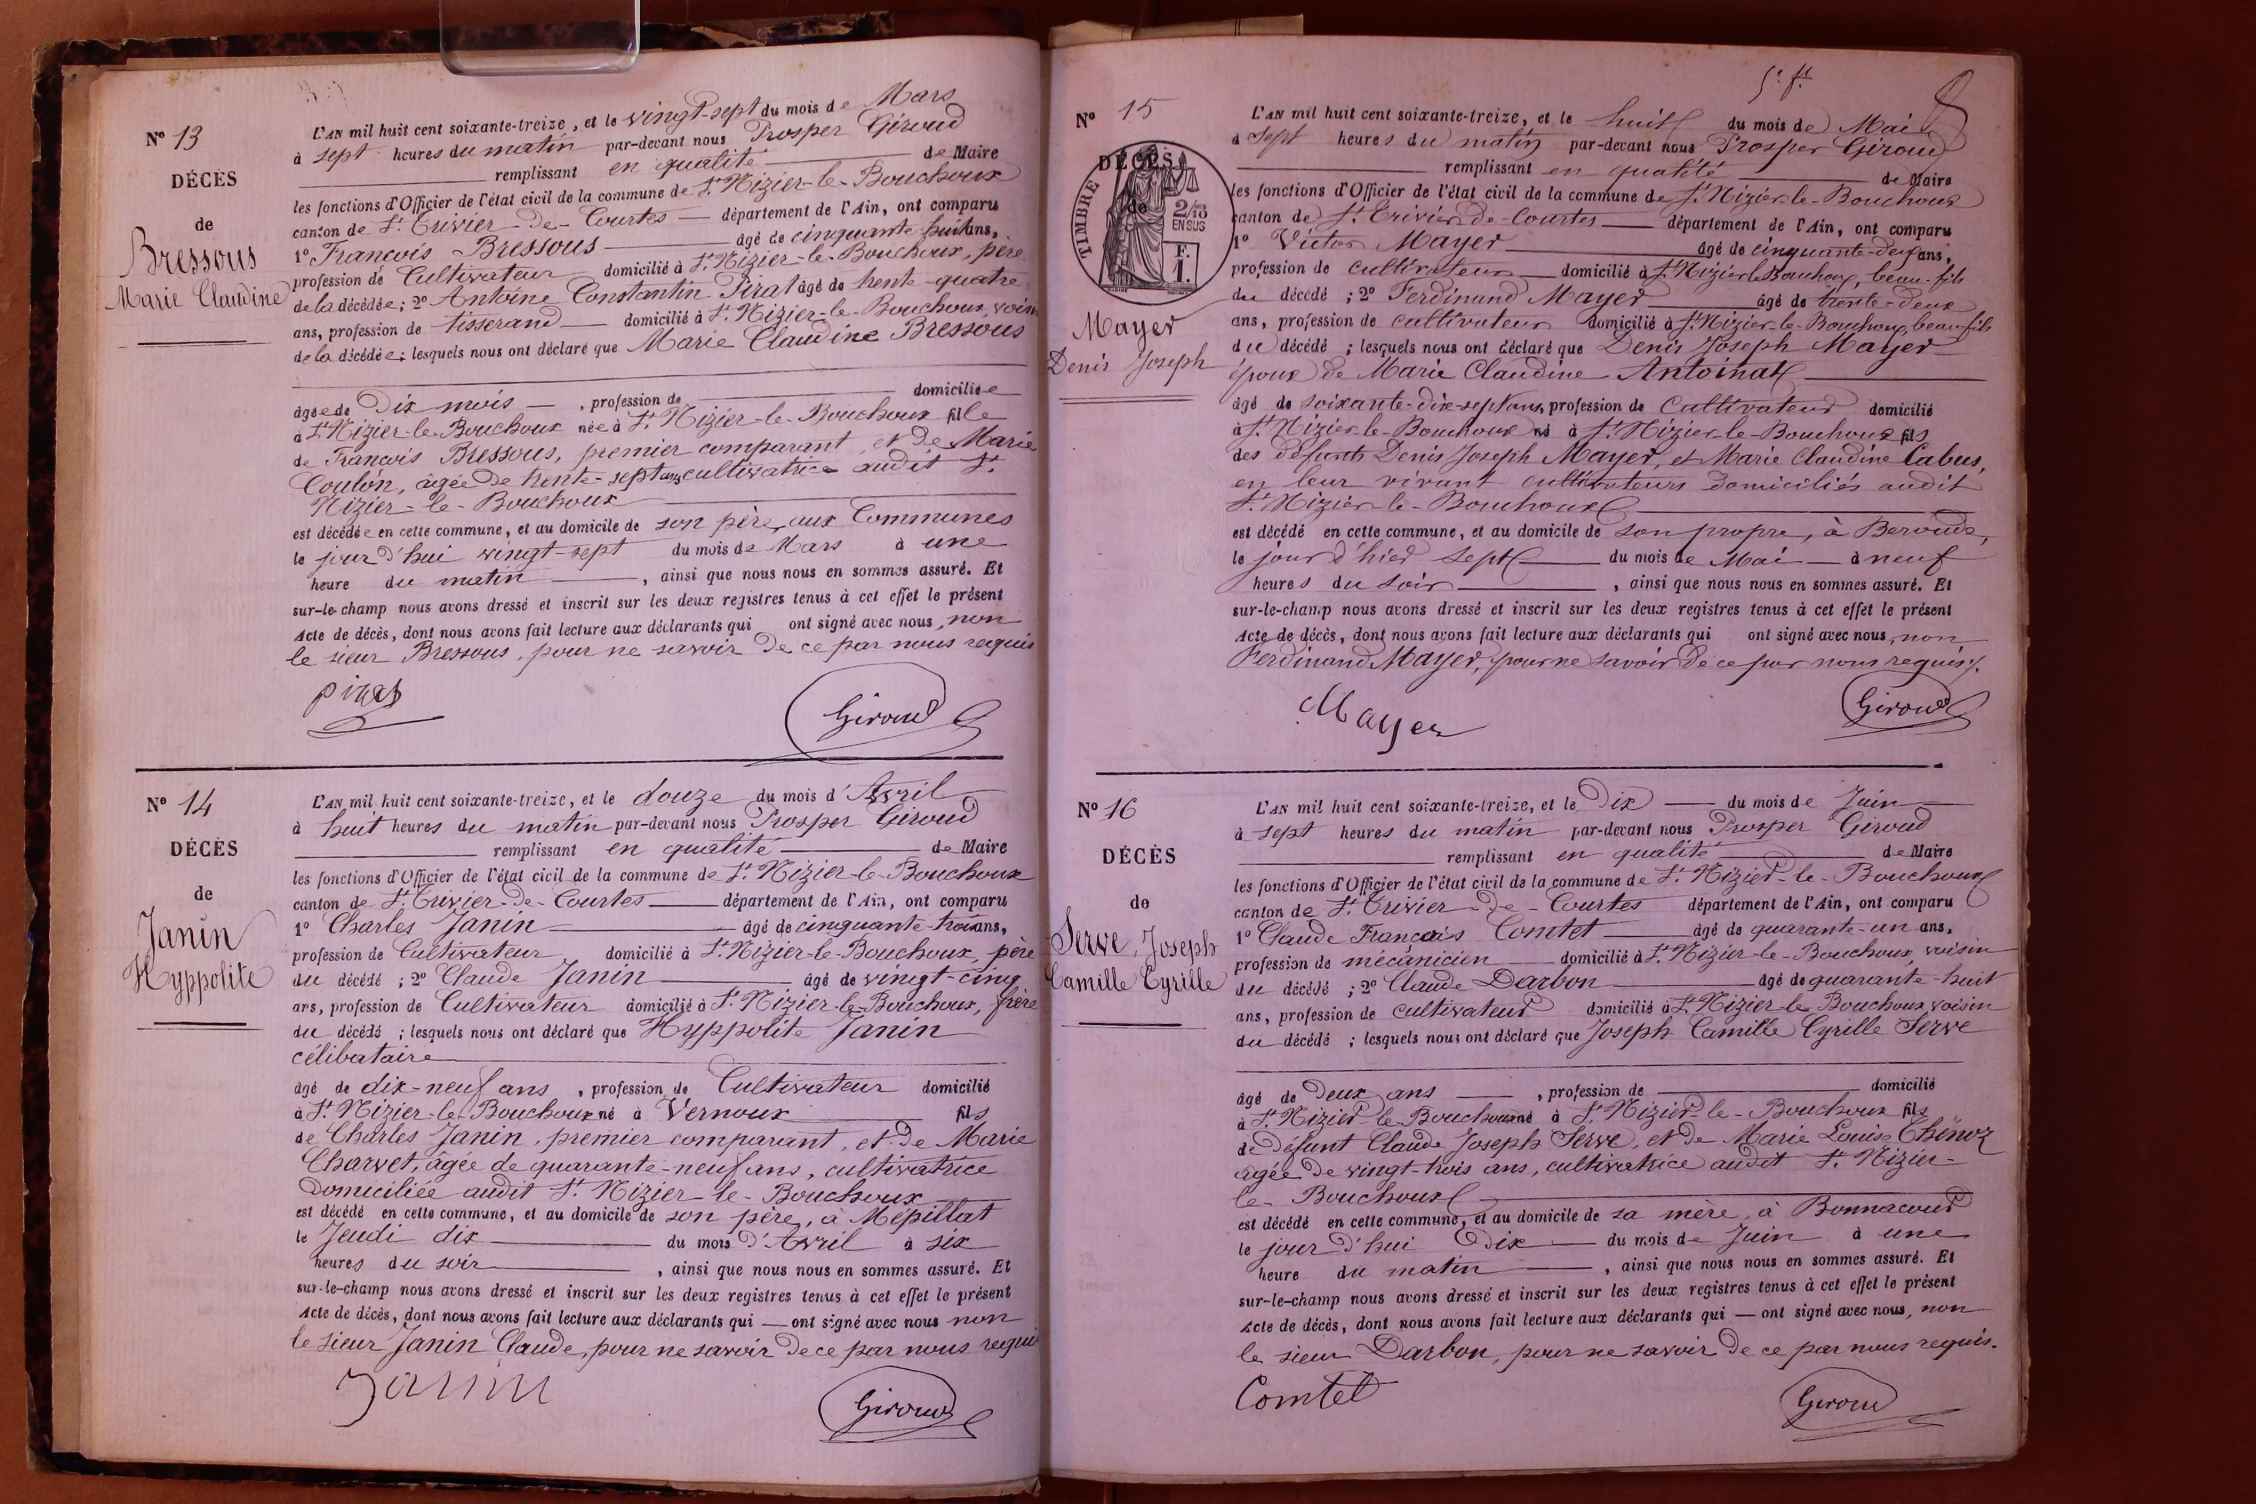 Nº 13
DÉCÈS
de
Bressous
Marie Claudine
L'AN mil huit cent soixante-treize, et le vingt-sept du mois de Mars
à sept heures du matin par-devant nous Prosper Giroud
remplissant en qualité de Maire
les fonctions d'Officier de l'état civil de la commune de St Nizier-le-Bouchoux
canton de St Trivier-de-Courtes département de l'Ain, ont comparu
1º François Bressous âgé de cinquante-huit ans,
profession de Cultivateur domicilié à St Nizier-le-Bouchoux, père
de la décédée ; 2º Antoine Constantin Pirat âgé de trente-quatre
ans, profession de tisserand domicilié à St Nizier-le-Bouchoux, voisin
de la décédée ; lesquels nous ont déclaré que Marie Claudine Bressous
âgée de Dix mois , profession de domiciliée
à St Nizier-le-Bouchoux née à St Nizier-le-Bouchoux fille
de François Bressous, premier comparant, et de Marie
Coulon, âgée de trente-sept ans cultivatrice audit St
Nizier-le-Bouchoux
est décédée en cette commune, et au domicile de son père, aux Communes
le jour d'hui vingt-sept du mois de Mars à une
heure du matin , ainsi que nous nous en sommes assuré. Et
sur-le-champ nous avons dressé et inscrit sur les deux registres tenus à cet effet le présent
Acte de décès, dont nous avons fait lecture aux déclarants qui ont signé avec nous, non
le sieur Bressous, pour ne savoir de ce par nous requis
pirat
Giroud
Nº 14
DÉCÈS
de
Janin
Hyppolite
L'AN mil huit cent soixante-treize, et le douze du mois d'Avril
à huit heures du matin par-devant nous Prosper Giroud
remplissant en qualité de Maire
les fonctions d'Officier de l'état civil de la commune de St Nizier-le-Bouchoux
canton de St Trivier-de-Courtes département de l'Ain, ont comparu
1º Charles Janin âgé de cinquante-trois ans,
profession de Cultivateur domicilié à St Nizier-le-Bouchoux, père
du décédé ; 2º Claude Janin âgé de vingt-cinq
ans, profession de Cultivateur domicilié à St Nizier-le-Bouchoux, frère
du décédé ; lesquels nous ont déclaré que Hyppolite Janin
célibataire
âgé de dix-neuf ans , profession de Cultivateur domicilié
à St Nizier-le-Bouchoux né à Vernoux fils
de Charles Janin, premier comparant, et de Marie
Charvet, âgée de quarante-neuf ans, cultivatrice
domiciliée audit St Nizier-le-Bouchoux
est décédé en cette commune, et au domicile de son père, à Mépillat
le Jeudi dix du mois d'Avril à six
heures du soir , ainsi que nous nous en sommes assuré. Et
sur-le-champ nous avons dressé et inscrit sur les deux registres tenus à cet effet le présent
Acte de décès, dont nous avons fait lecture aux déclarants qui ont signé avec nous non
le sieur Janin Claude, pour ne savoir de ce par nous requis
Janin
Giroud
5e ft
8
Nº 15
DÉCÈS
de
TIMBRE
2/10
EN SUS
F.
1.
Mayer
Denis Joseph
L'AN mil huit cent soixante-treize, et le huit du mois de Mai
à sept heures du matin par-devant nous Prosper Giroud
remplissant en qualité de Maire
les fonctions d'Officier de l'état civil de la commune de St Nizier-le-Bouchoux
canton de St Trivier-de-Courtes département de l'Ain, ont comparu
1º Victor Mayer âgé de cinquante-deux ans,
profession de cultivateur domicilié à St Nizier-le-Bouchoux, beau-fils
du décédé ; 2º Ferdinand Mayer âgé de trente-deux
ans, profession de cultivateur domicilié à St Nizier-le-Bouchoux, beau-fils
du décédé ; lesquels nous ont déclaré que Denis Joseph Mayer
époux de Marie Claudine Antoinat
âgé de soixante-dix-sept ans, profession de Cultivateur domicilié
à St Nizier-le-Bouchoux né à St Nizier-le-Bouchoux fils
des défunts Denis Joseph Mayer, et Marie Claudine Cabus,
en leur vivant cultivateurs domiciliés audit
St Nizier-le-Bouchoux
est décédé en cette commune, et au domicile de son propre, à Beroude,
le jour d'hier sept du mois de Mai à neuf
heures du soir , ainsi que nous nous en sommes assuré. Et
sur-le-champ nous avons dressé et inscrit sur les deux registres tenus à cet effet le présent
Acte de décès, dont nous avons fait lecture aux déclarants qui ont signé avec nous, non
Ferdinand Mayer, pour ne savoir de ce par nous requis.
Mayer
Giroud
Nº 16
DÉCÈS
de
Serve, Joseph
Camille Cyrille
L'AN mil huit cent soixante-treize, et le Dix du mois de Juin
à sept heures du matin par-devant nous Prosper Giroud
remplissant en qualité de Maire
les fonctions d'Officier de l'état civil de la commune de St Nizier-le-Bouchoux
canton de St Trivier-de-Courtes département de l'Ain, ont comparu
1º Claude François Comtet âgé de quarante-un ans,
profession de mécanicien domicilié à St Nizier-le-Bouchoux, voisin
du décédé ; 2º Claude Darbon âgé de quarante-huit
ans, profession de cultivateur domicilié à St Nizier-le-Bouchoux voisin
du décédé ; lesquels nous ont déclaré que Joseph Camille Cyrille Serve
âgé de Deux ans , profession de domicilié
à St Nizier-le-Bouchoux né à St Nizier-le-Bouchoux fils
de défunt Claude Joseph Serve, et de Marie Louise Thénoz
âgée de vingt-trois ans, cultivatrice audit St Nizier-
le-Bouchoux
est décédé en cette commune, et au domicile de sa mère, à Bonnacour
le jour d'hui Dix du mois de Juin à une
heure du matin , ainsi que nous nous en sommes assuré. Et
sur-le-champ nous avons dressé et inscrit sur les deux registres tenus à cet effet le présent
Acte de décès, dont nous avons fait lecture aux déclarants qui ont signé avec nous, non
le sieur Darbon, pour ne savoir de ce par nous requis.
Comtet
Giroud